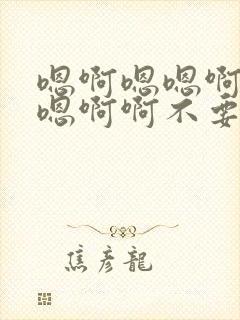 嗯啊嗯嗯啊
嗯啊啊不要
焦彦龍